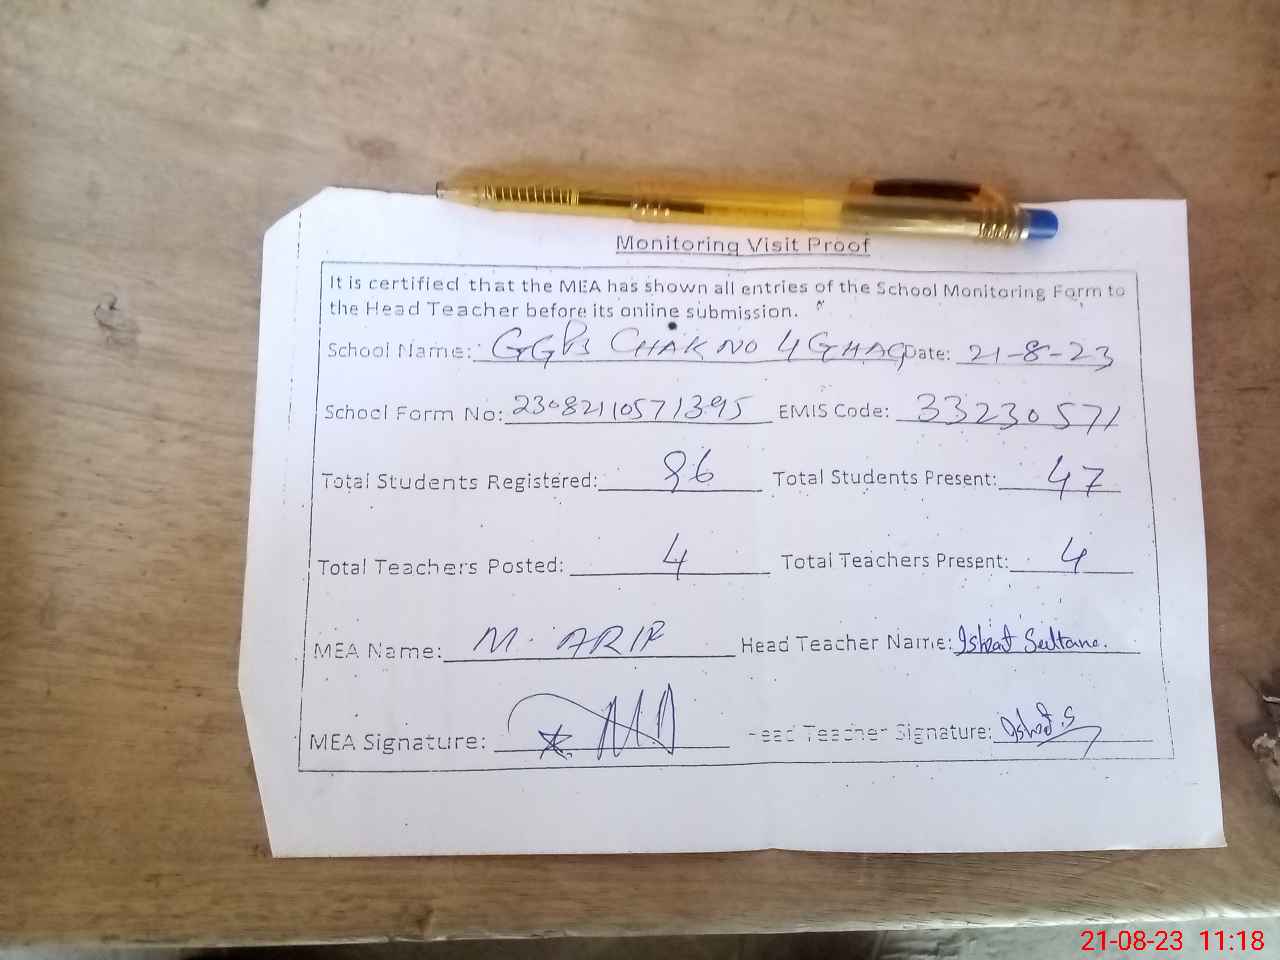 Monitoring Visit Proof
It is certified that the MEA has shown all entries of the School Monitoring Form to
the Head Teacher before its online submission.
School Name: GGPS CHAK NO 4 GHAG Date: 21-8-23
School Form No: 23082110571395 EMIS Code: 33230571
Total Students Registered: 96 Total Students Present: 47
Total Teachers Posted: 4 Total Teachers Present: 4
MEA Name: M. ARIF Head Teacher Name: Ishrat Sultana.
MEA Signature: Head Teacher Signature: Ishrat.S
21-08-23 11:18